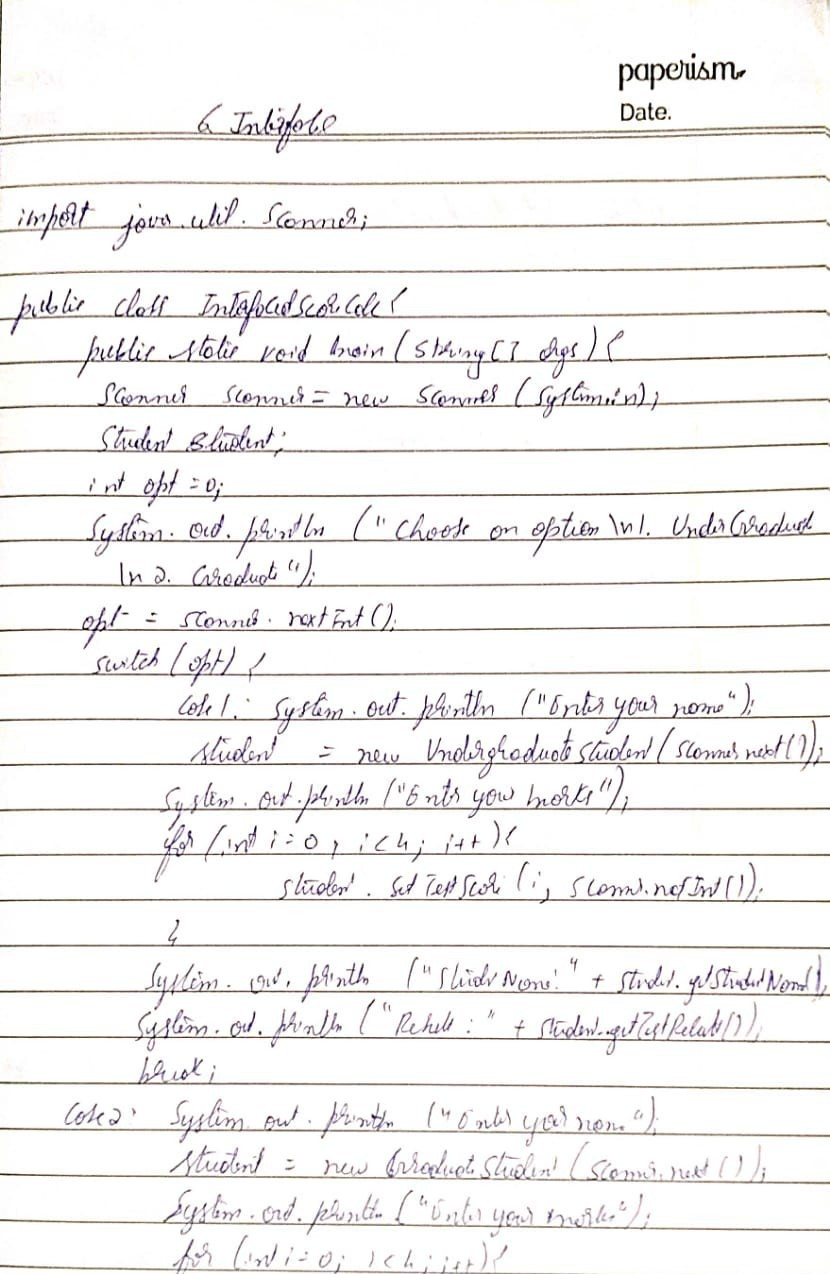 paperism
Date.
6 Interface
import java.util.Scanner;
public class InterfacedScoreCode {
public static void main (String [] args) {
Scanner scanner = new Scanner (System.in);
Student student;
int opt = 0;
System.out.println ("Choose an option \n1. UnderGraduate
\n 2. Graduate");
opt = scanner.nextInt ();
switch (opt) {
case 1: System.out.println ("Enter your name");
student = new UndergraduateStudent (scanner.next());
System.out.println ("Enter your marks");
for (int i = 0, i < 4; i++) {
student.setTestScore (i, scanner.nextInt());
}
System.out.println ("Student Name: " + student.getStudentName());
System.out.println ("Result : " + student.getTestResult());
break;
case 2: System.out.println ("Enter your name");
student = new GraduateStudent (scanner.next ());
System.out.println ("Enter your marks");
for (int i = 0; i < 4; i++) {